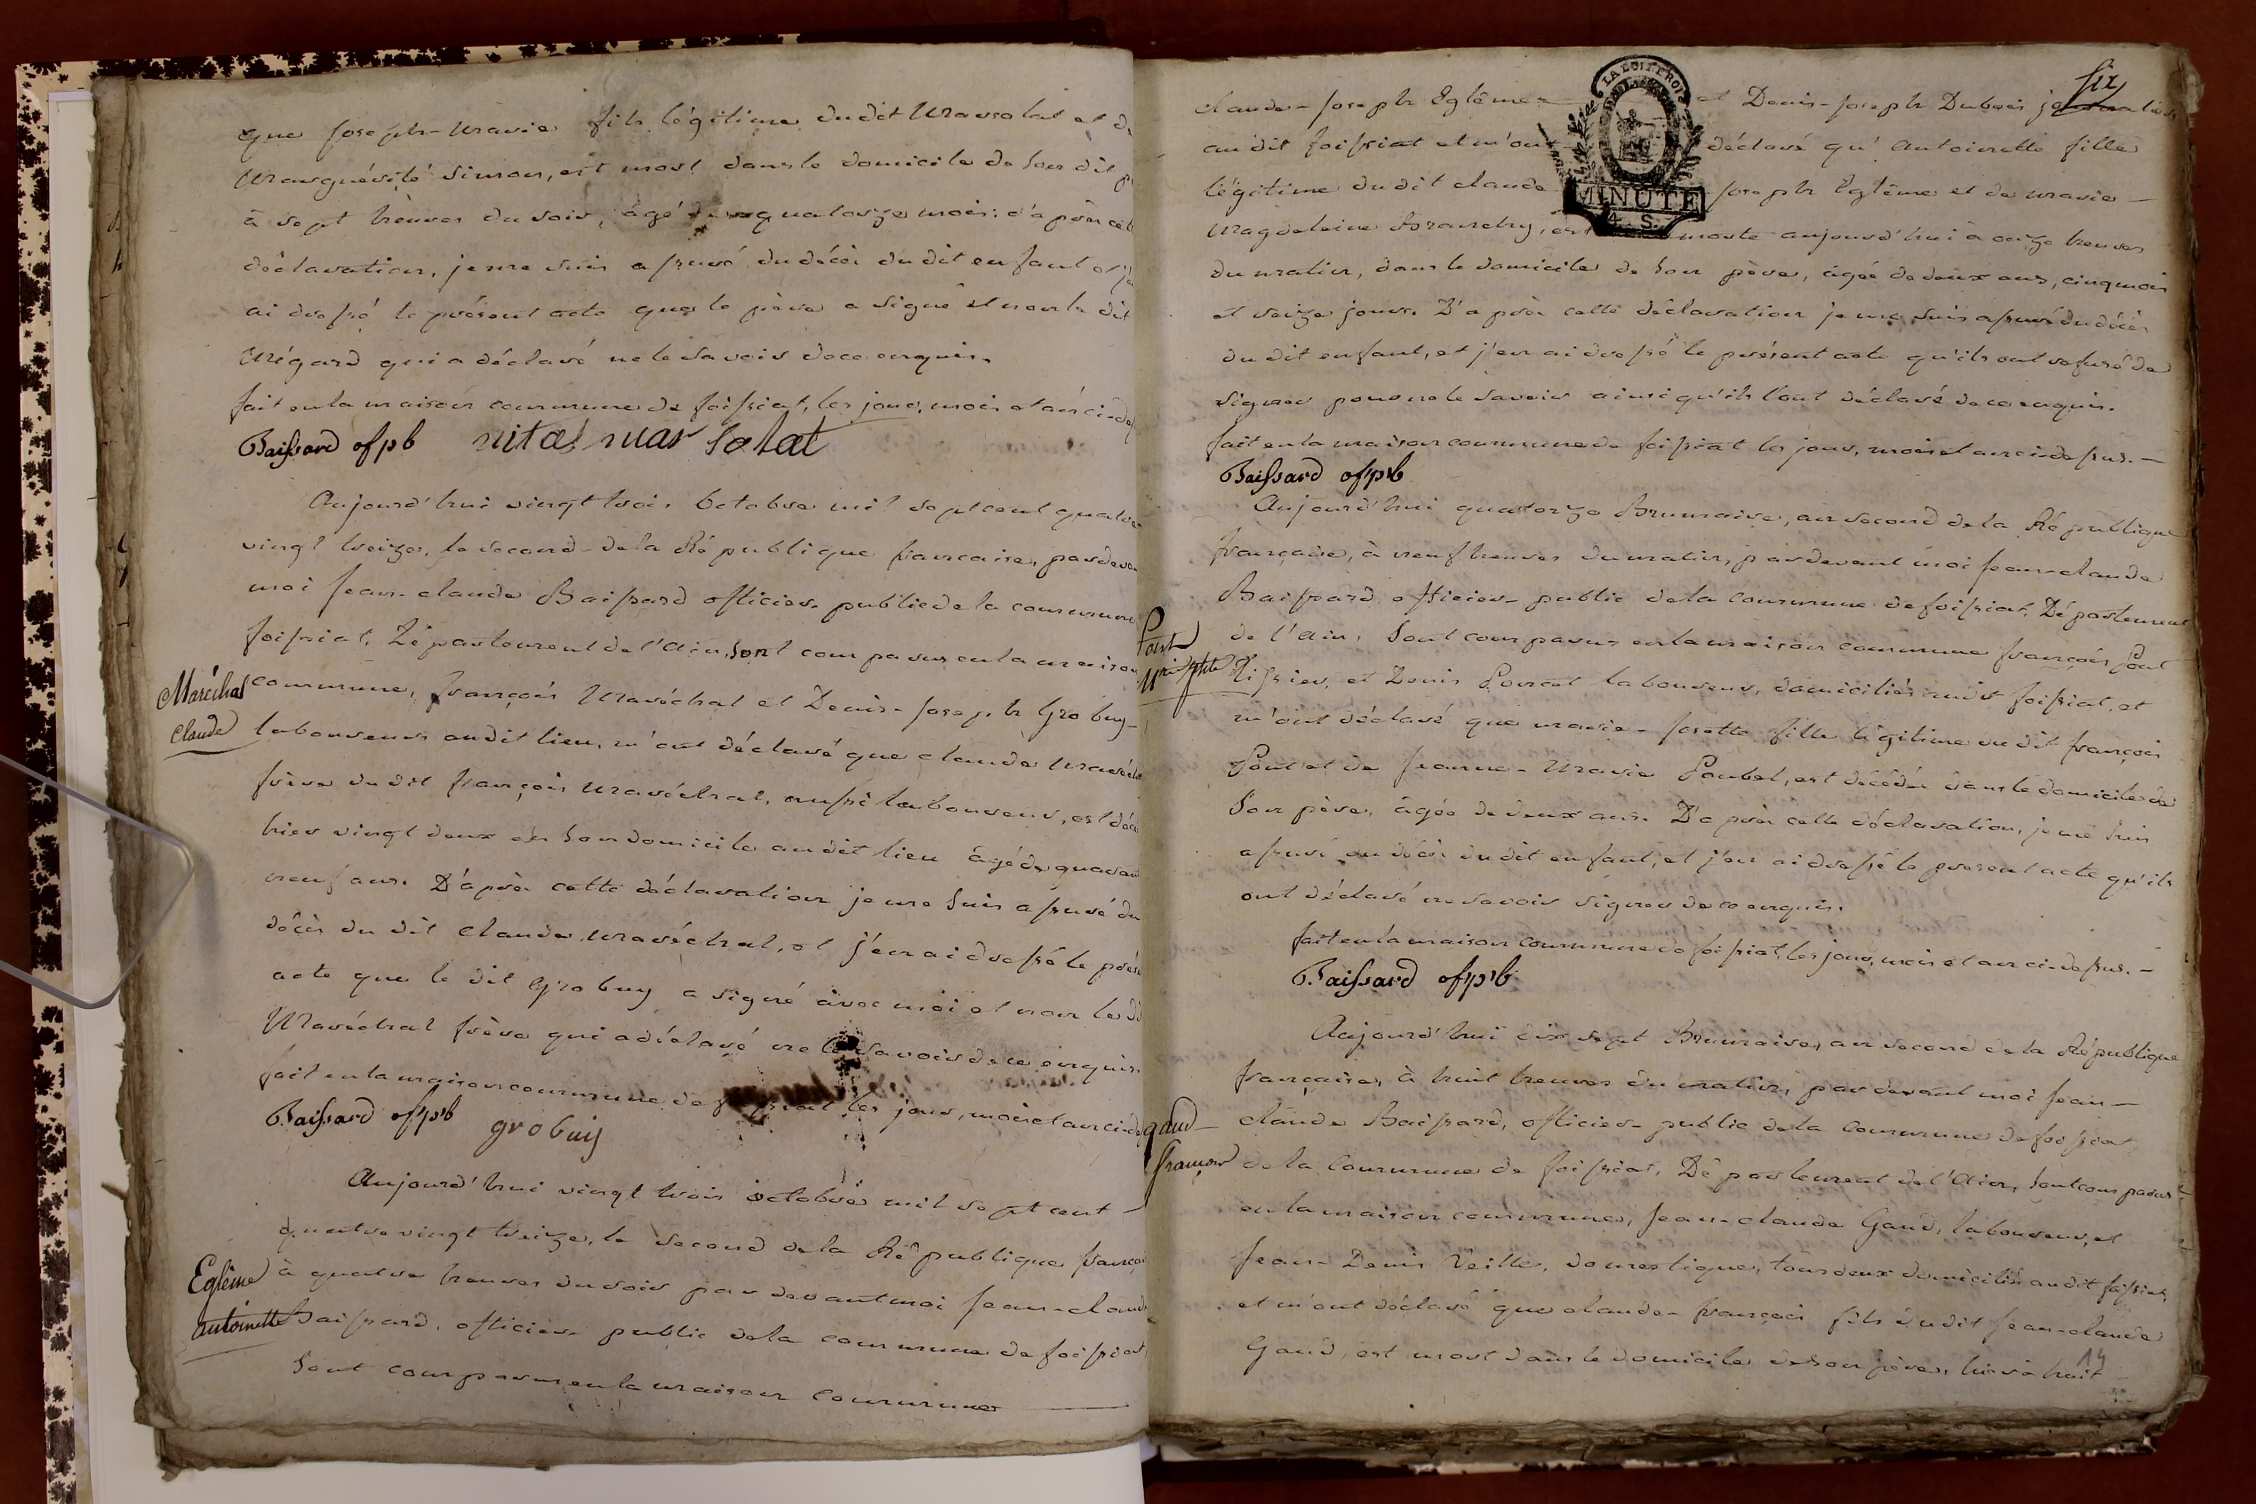 que Joseph-Marie fils légitime dudit Marsolat et d
Marguérite Simon, est mort dans le domicile de son dit p
à sept heures du soir, âgé de quatorze mois; d'après cet
déclaration, je me suis assuré du décès du dit enfant et j'e
ai dressé le présent acte que le père a signé et non le dit
Mégard qui a déclaré ne le savoir de ce enquis.
fait en la maison commune de foissiat, les jour, mois et an ci-des
Baissard of pb
Aujourd'hui vingt trois octobre mil sept cent quatre
vingt treize, le second de la République francaise, pardevan
moi Jean-claude Baissard officier public de la commune
foissiat, Département de l'Ain, sont comparus en la maison
Maréchal
Claude
commune, françois Maréchal et Denis-Joseph Grobuy
laboureurs audit lieu, m'ont déclaré que claude Maréch
frère du dit françois Maréchal, aussi laboureur, est décé
hier vingt deux en son domicile audit lieu âgé de quaran
neuf ans. D'après cette déclaration je me suis assuré du
décès du dit claude Maréchal, et j'en ai dressé le prése
acte que le dit Grobuy a signé avec moi et non le di
Maréchal frère qui a déclaré ne le savoir de ce enquis.
fait en la maison commune de foissiat les jour, mois et an ci-de
Baissard of pb grobuy
Aujourd'hui vingt trois octobre mil sept cent
quatre vingt treize, le second de la République françai
Eglème
antoinette
à quatre heures du soir par devant moi Jean-claud
Baissard, officier public de la commune de foissiat,
sont comparus en la maison commune
six
claude-Joseph Eglême et Denis-Joseph Dubois
au dit foissiat et m'ont déclaré qu'antoinette fille
légitime du dit claude Joseph Eglême et de marie
LA LOI LE ROI
MINUTE
4. S.
Magdeleine est morte aujourd'hui à onze heures
du matin, dans le domicile de son père, âgée de deux ans, cinq mois
et seize jours. D'après cette déclaration je me suis assuré du décès
du dit enfant, et j'en ai dressé le présent acte qu'ils ont refusé de
signer pour ne le savoir ainsi qu'ils l'ont déclaré de ce enquis.
fait en la maison commune de foissiat les jour, mois et an ci-dessus.
Baissard of pb
Aujourd'hui quatorze Brumaire, an second de la République
française, à neuf heures du matin, pardevant moi Jean-claude
Baissard officier public de la commune de foissiat, Département
Pont
de l'Ain, sont comparus en la maison commune françois Pont
et Denis laboureurs, domiciliés audit foissiat, et
m'ont déclaré que marie-Josette fille légitime du dit françois
Pont et de Jeanne-Marie est décédée dans le domicile de
son père, âgée de deux ans. D'après cette déclaration, je me suis
assuré du décès du dit enfant, et j'en ai dressé le présent acte qu'ils
ont déclaré ne savoir signer de ce enquis.
fait en la maison commune de foissiat, les jour, mois et an ci-dessus.
Baissard of pb
Aujourd'hui dix sept Brumaire, an second de la République
française, à huit heures du matin, par devant moi Jean-
gaud
françois
claude Baissard, officier public de la commune de foissiat
de la commune de foissiat, Département de l'Ain, sont comparus
en la maison commune, Jean-claude Gaud, laboureur, et
Jean-Denis Veille, domestique, tous deux domiciliés audit foissiat,
et m'ont déclaré que claude-françois fils du dit Jean-claude
Gaud, est mort dans le domicile de son père, hier à huit
14